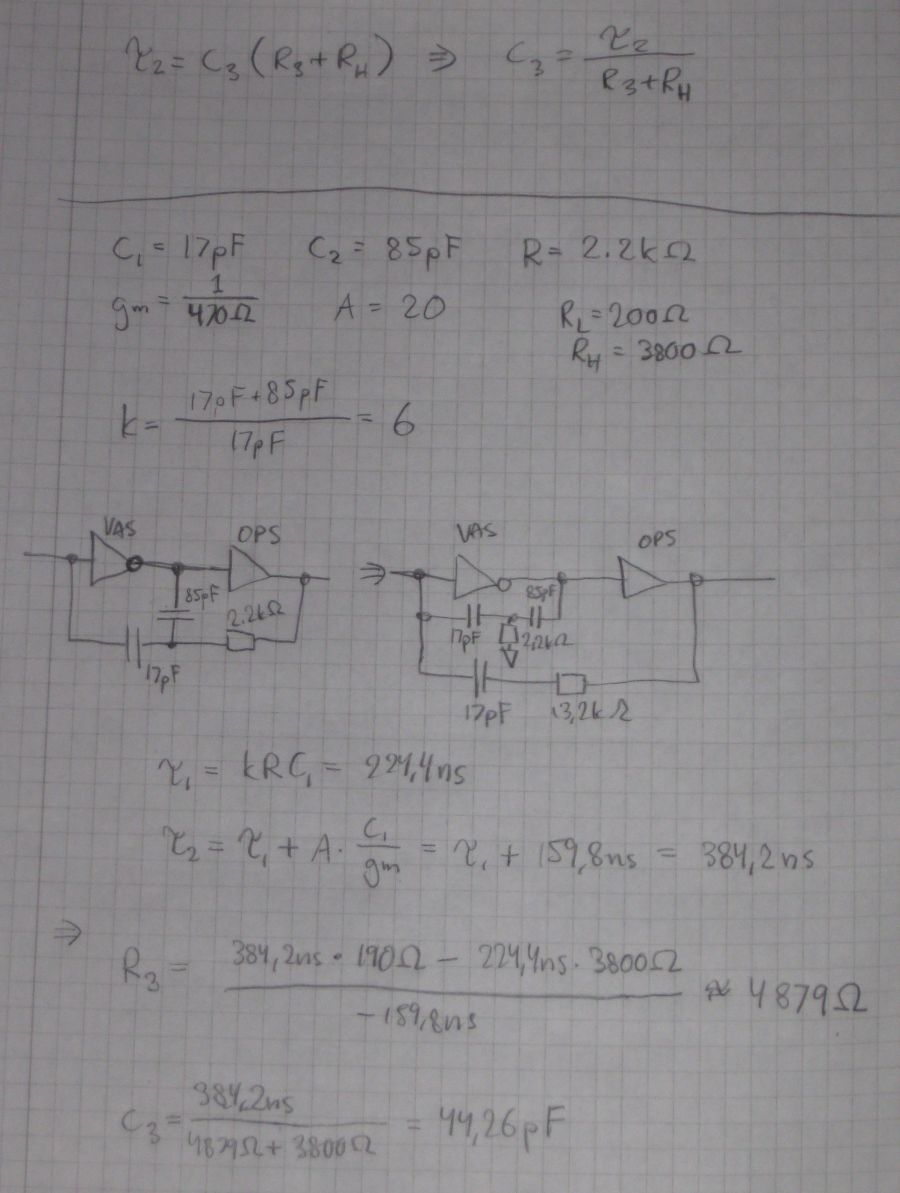 τ₂ = C₃ (R₃ + R_H) ⇒ C₃ = τ₂ / (R₃ + R_H)
C₁ = 17pF C₂ = 85pF R = 2.2kΩ
gm = 1 / 470Ω A = 20 R_L = 200Ω
R_H = 3800Ω
k = (17pF + 85pF) / 17pF = 6
VAS OPS ⇒ VAS OPS
85pF 2.2kΩ 85pF
17pF 17pF 2,2kΩ
17pF 13,2kΩ
τ₁ = kRC₁ = 224,4ns
τ₂ = τ₁ + A · C₁ / gm = τ₁ + 159,8ns = 384,2ns
⇒
R₃ = (384,2ns · 190Ω − 224,4ns · 3800Ω) / −159,8ns ≈ 4879Ω
C₃ = 384,2ns / (4879Ω + 3800Ω) = 44,26pF